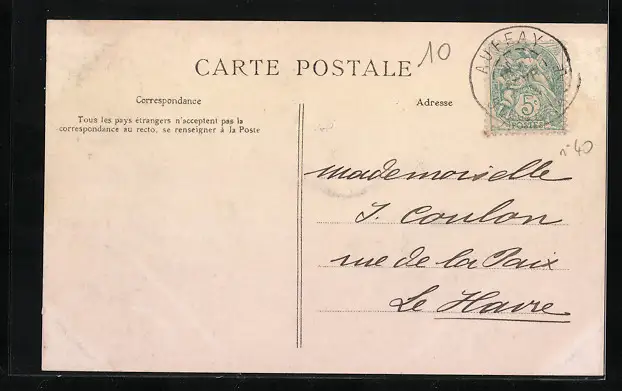 10
AUFFAY
CARTE POSTALE
5c
POSTES
Correspondance
Adresse
Tous les pays étrangers n'acceptent pas la
correspondance au recto, se renseigner à la Poste
n° 40
Mademoiselle
J. Coulon
rue de la Paix
Le Havre